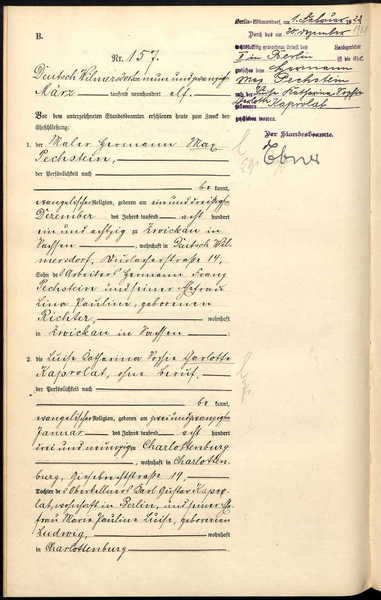 B.
Nr. 157.
Deutsch Wilmersdorf am neunundzwanzigsten
März tausend neunhundert elf.
Vor dem unterzeichneten Standesbeamten erschienen heute zum Zweck der
Eheschließung:
1. der Maler Hermann Max
Pechstein,
der Persönlichkeit nach
be kannt,
evangelischer Religion, geboren am einunddreißigsten
Dezember des Jahres tausend acht hundert
ein und achtzig zu Zwickau in
Sachsen, wohnhaft in Deutsch Wil-
mersdorf, Durlacherstraße 14,
Sohn des Arbeiters Hermann Franz
Pechstein und seiner Ehefrau
Lina Pauline, geborenen
Richter, wohnhaft
in Zwickau in Sachsen.
2. die Luise Catharina Sophie Charlotte
Kaprolat, ohne Beruf,
der Persönlichkeit nach
be kannt,
evangelischer Religion, geboren am zweiundzwanzigsten
Januar des Jahres tausend acht hundert
drei und neunzig zu Charlottenburg
, wohnhaft in Charlotten-
burg, Giesebrechtstraße 19,
Tochter des Oberkellners Karl Gustav Kapro-
lat, wohnhaft in Berlin, und seiner Ehe-
frau Marie Pauline Luise, geborenen
Ludwig, wohnhaft
in Charlottenburg
Berlin-Wilmersdorf, am 1. Februar
Durch das am 20. Dezember
rechtskräftig gewordene Urteil des Landgerichts
I in Berlin ist die Ehe
zwischen dem Hermann
Max Pechstein
und der Luise Katharina Sophie
Charlotte
geborenen Kaprolat
geschieden worden.
Der Standesbeamte.
Ebner